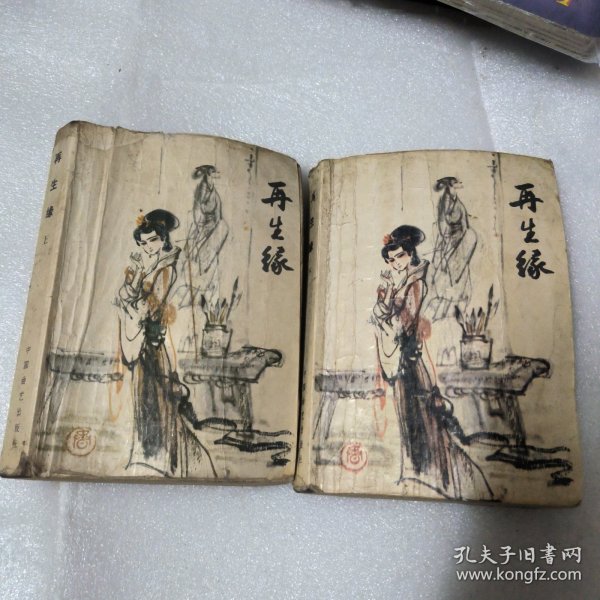 再生缘 上
中国曲艺出版社
再生缘
再生缘
孔夫子旧书网
www.kongfz.com